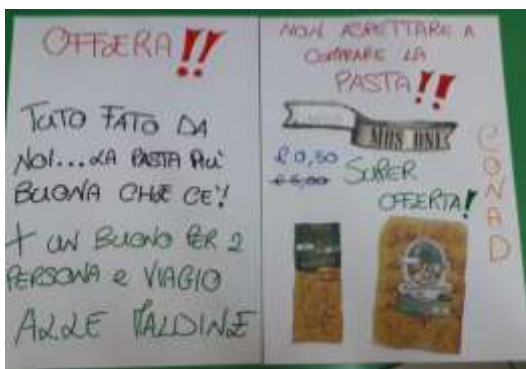 OFFERA!!
TUTO FATO DA
NOI... LA PASTA PIU'
BUONA CHE CE'!
+ UN BUONO PER 2
PERSONA e VIAGIO
ALLE MALDINE
NON ASPETTARE A
COMPRARE LA
PASTA!!
€ 0,50
€ 5,00
SUPER
OFFERTA!
CONAD